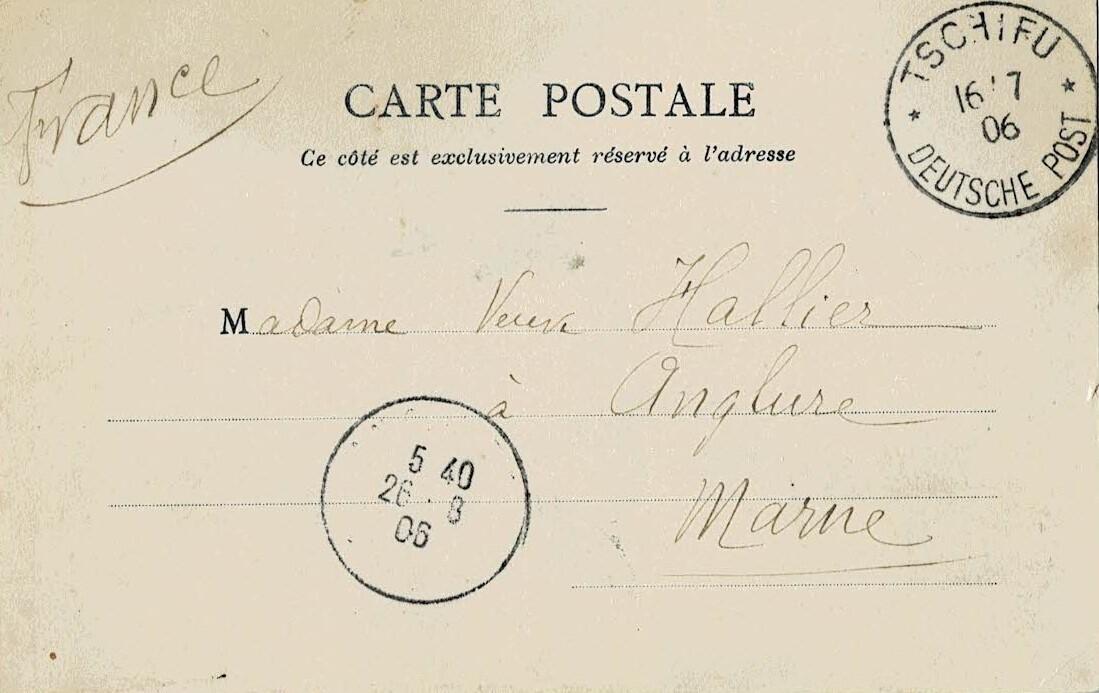 France
CARTE POSTALE
Ce côté est exclusivement réservé à l'adresse
TSCHIFU
16 7
06
* DEUTSCHE POST *
Madame Veuve Hallier
à Anglure
Marne
5 40
26 8
06